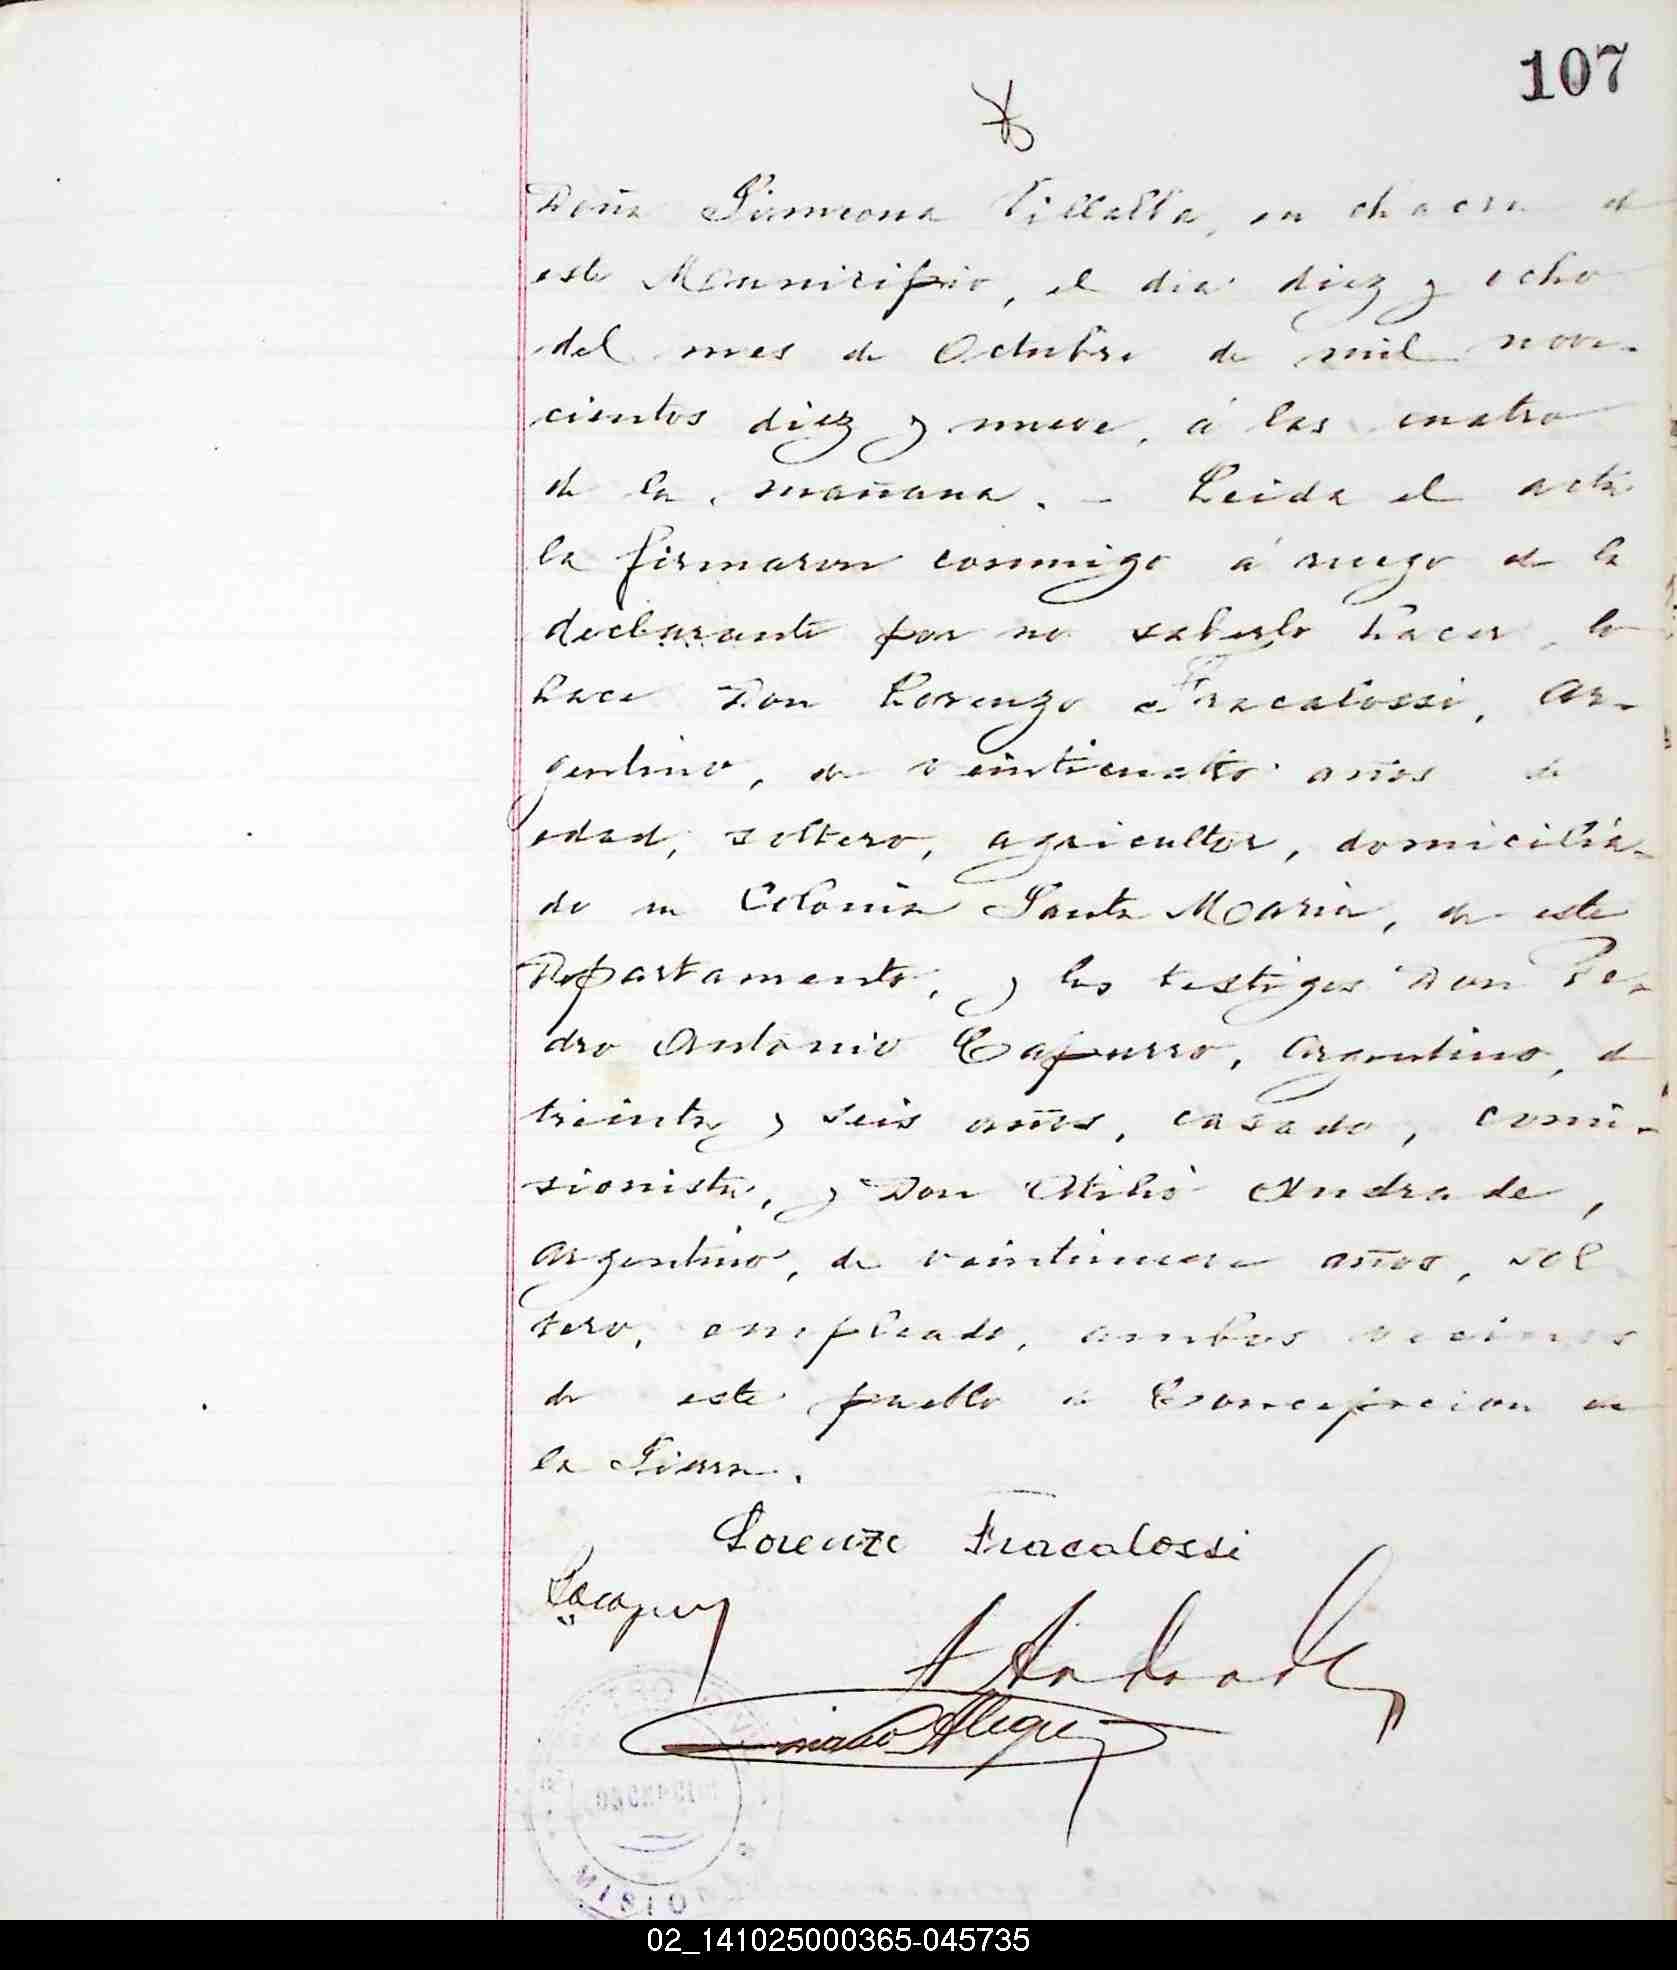 107
Doña Simeona Villalba, en chacra de
este Municipio, el dia diez y ocho
del mes de Octubre de mil nove-
cientos diez y nueve, á las cuatro
de la mañana. - Leida el acta
la firmaron conmigo á ruego de la
declarante por no saberlo hacer, lo
hace Don Lorenzo Fracalossi, Ar-
gentino, de veinticuatro años de
edad, soltero, agricultor, domicilia-
do en Colonia Santa Maria, de este
Departamento, y los testigos Don Pe-
dro Antonio Capurro, Argentino, de
treinta y seis años, casado, comi-
sionista, y Don Atilio Andrade,
Argentino, de veintinueve años, sol
tero, empleado, ambos vecinos
de este pueblo de Concepcion de
la Sierra.
Lorenzo Fracalossi
A Andrade
Alegre
CONCEPCION
MISIO
02_141025000365-045735